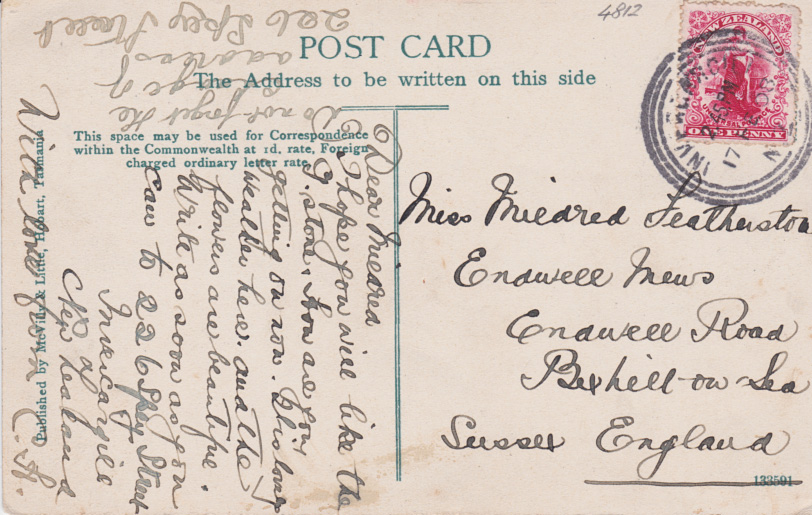 4812
POST CARD
The Address to be written on this side
This space may be used for Correspondence
within the Commonwealth at 1d. rate, Foreign
charged ordinary letter rate.
Published by McVilly & Little, Hobart, Tasmania
NEW ZEALAND
ONE PENNY
INVERCARGILL
17
Miss Mildred Featherston
Endwell Mews
Endwell Road
Bexhill-on-Sea
Sussex England
133591
Dear Mildred
I hope you will like the
G. stone. How are you
getting on now.
weather here and the
flowers are beautiful.
Write as soon as you
can to 226 Spey Street
Invercargill
New Zealand
With love from
Do not forget the
change of
address
226 Spey Street